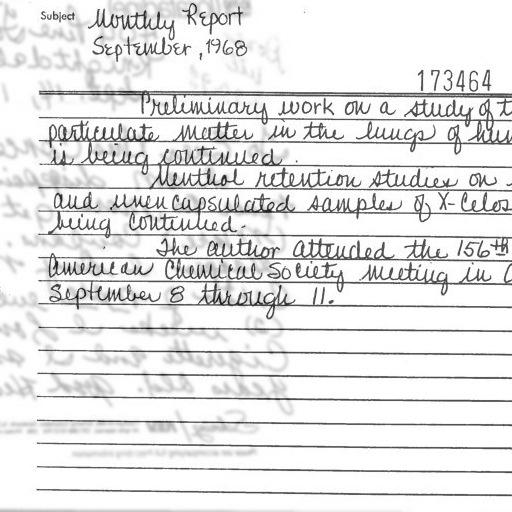 Subject Monthly Report
September, 1968
173464
Preliminary work on a study of t
particulate matter in the lungs of hum
is being continued.
Menthol retention studies on
and unencapsulated samples of X-Celos
being continued.
The author attended the 156th
American Chemical Society meeting in
September 8 through 11.